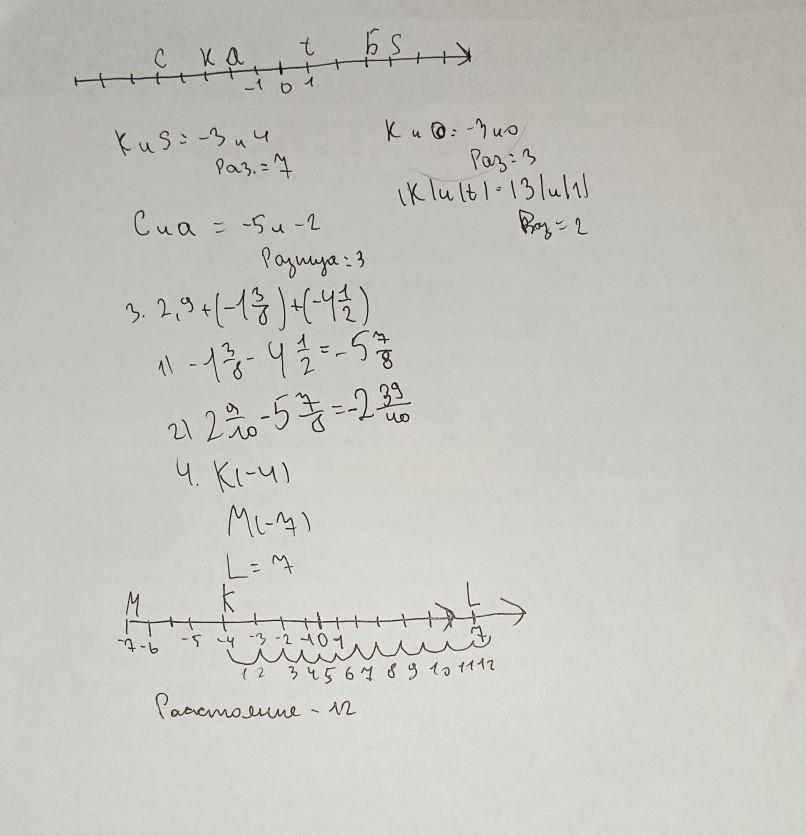 C K a t Б S
-1 0 1
K и S = -3 и 4
Раз. = 7
K и 0 = -3 и 0
Раз = 3
|K| и |t| = |3| и |1|
Раз = 2
C и a = -5 и -2
Разница = 3
3. 2,9 + (-1 3/8) + (-4 1/2)
1) -1 3/8 - 4 1/2 = -5 7/8
2) 2 9/10 - 5 7/8 = -2 39/40
4. K(-4)
M(-7)
L = 7
M K L
-7 -6 -5 -4 -3 -2 -1 0 1 7
1 2 3 4 5 6 7 8 9 10 11 12
Расстояние - 12